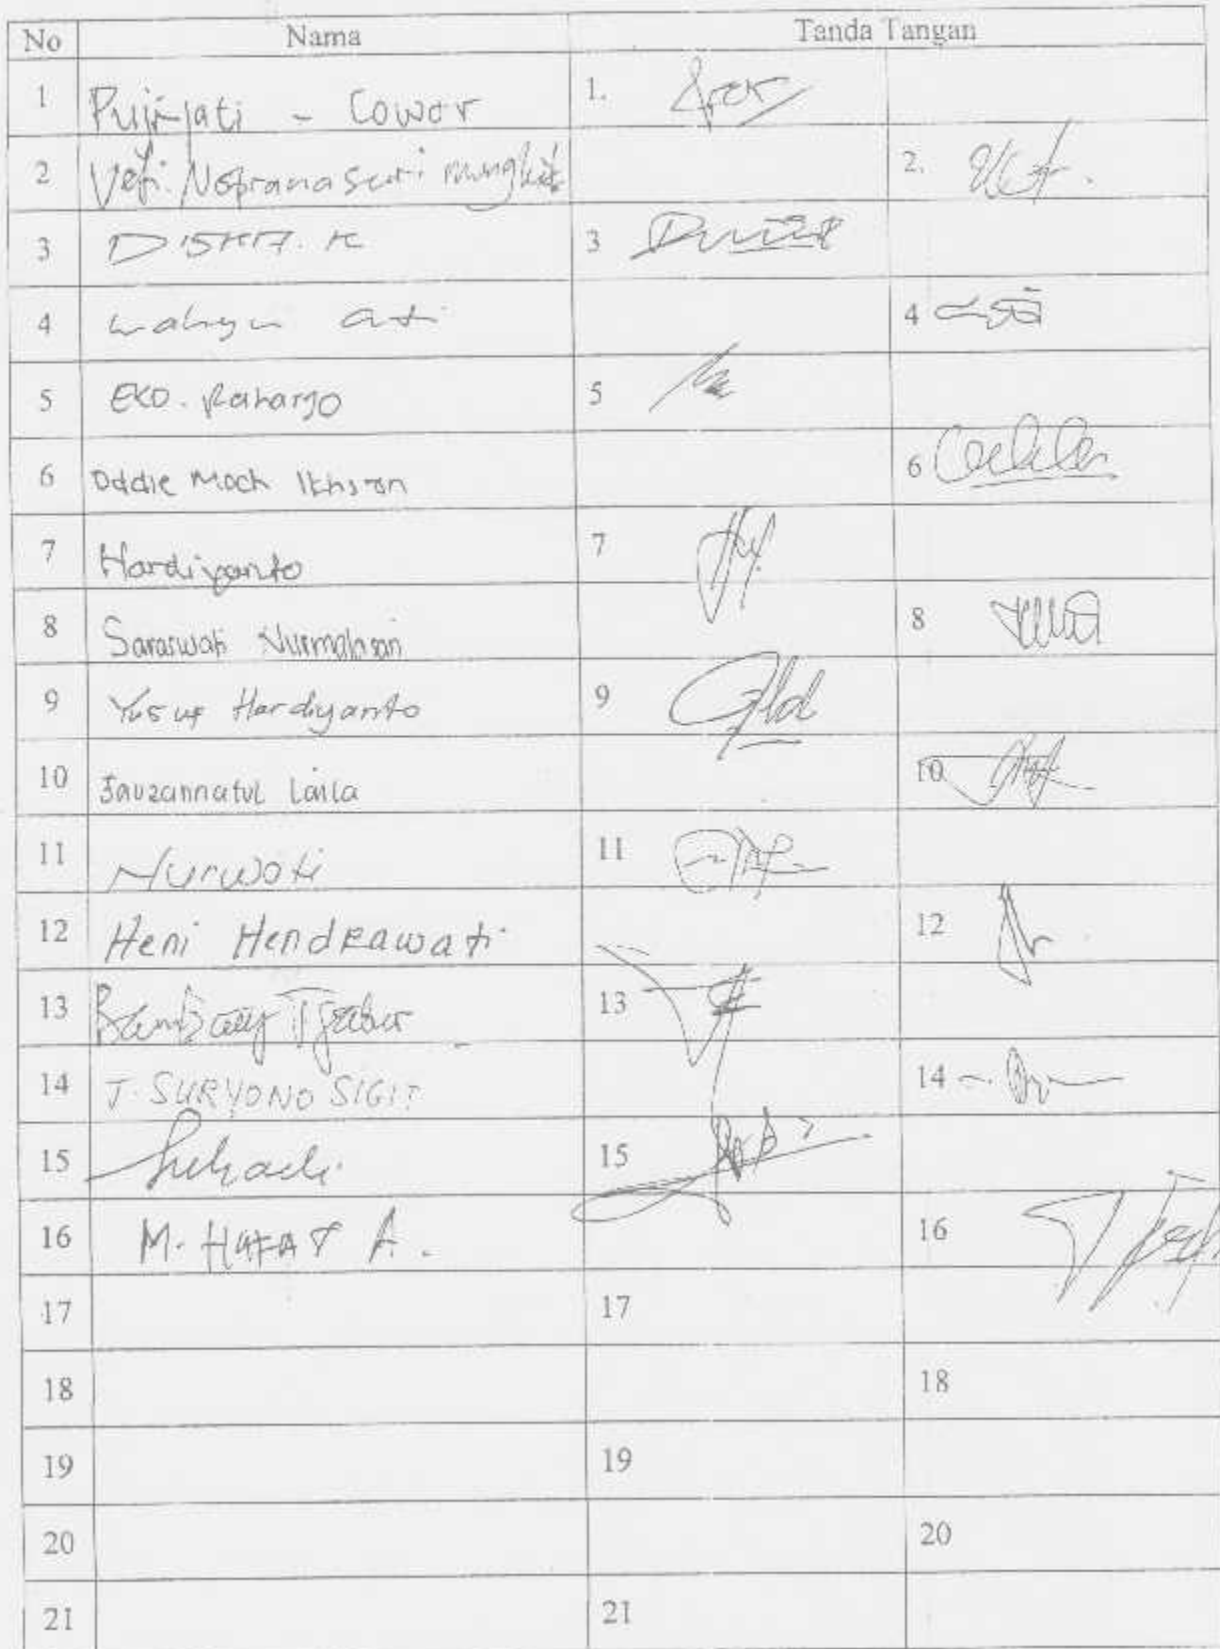 No Nama Tanda Tangan
1 Pujijati - Cower 1.
2 Vefi Nofrianasari 2.
3 DISKA. K 3
4 Wahyu Ati 4
5 EKO. Raharjo 5
6 Oddie Moch Ikhsan 6
7 Hardiyanto 7
8 Saraswati Nurmalasari 8
9 Yusuf Hardiyanto 9
10 Fauzannatul Laila 10
11 Nurwati 11
12 Heni Hendrawati 12
13 Bambang 13
14 J. SURYONO SIGIT 14
15 Suhadi 15
16 M. A. 16
17 17
18 18
19 19
20 20
21 21